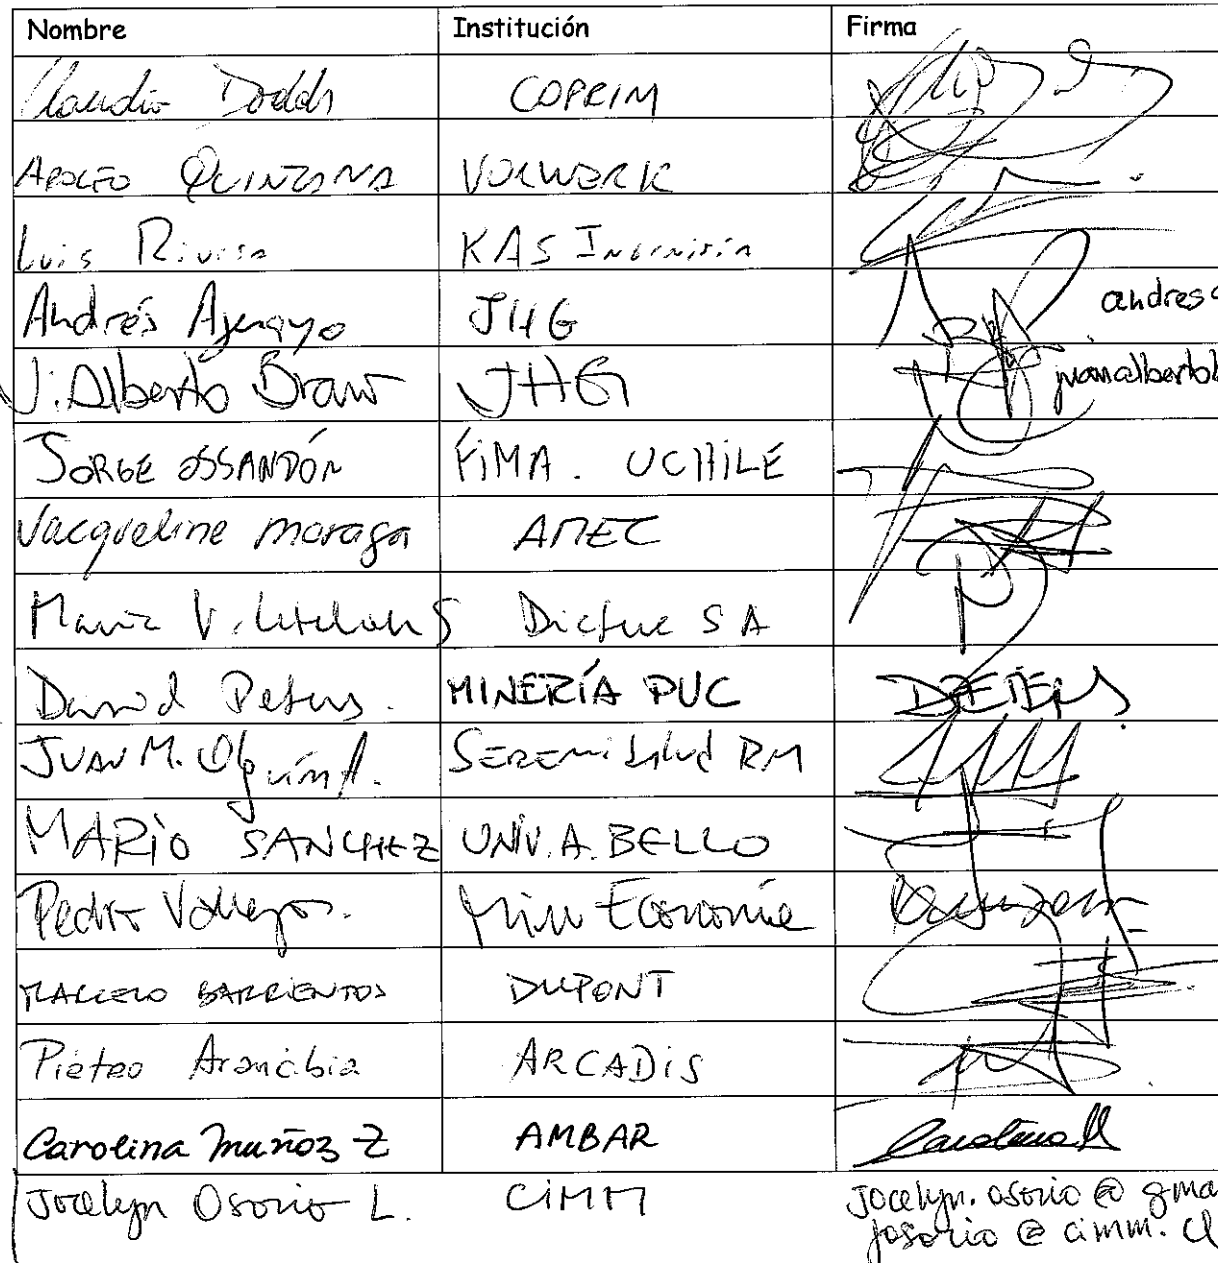 Nombre Institución Firma
Claudio Dodds COPRIM
Adolfo Quintana VOLWERK
Luis Rivera KAS Ingeniería
Andrés Ayengyo JHG andres
J. Alberto Bravo JHG juanalberto
JORGE OSSANDÓN FIMA. UCHILE
Jacqueline Moraga AMEC
María V. Dictuc SA
David Peters. MINERÍA PUC DPETERS.
JUAN M. Olguín A. SEREMI Salud RM
MARIO SANCHEZ UNIV. A. BELLO
Pedro Vallejos. Min Economía
MARCELO BARRIENTOS DUPONT
Pietro Arancibia ARCADIS
Carolina Muñoz Z AMBAR Carolina M
Jocelyn Osorio L. CIMM Jocelyn.osorio @ gma
josorio @ cimm.cl